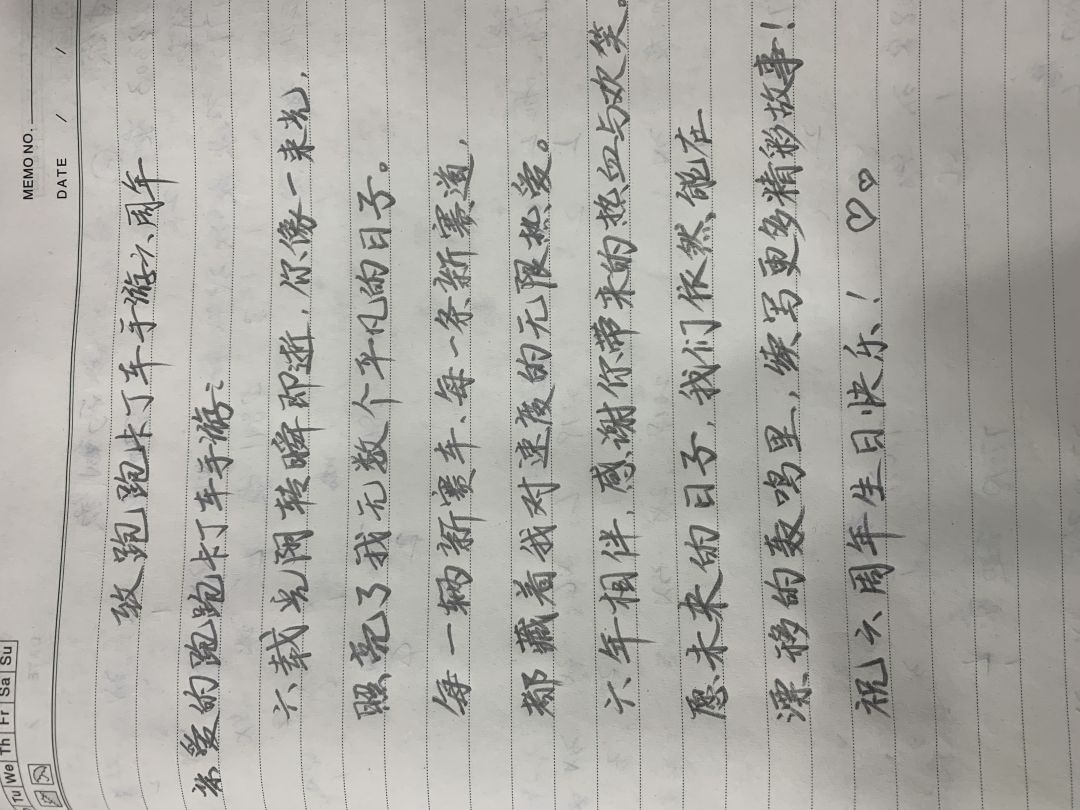 MEMO NO.
DATE / /
Tu We Th Fr Sa Su
致跑跑卡丁车手游六周年
亲爱的跑跑卡丁车手游:
六载光阴转瞬即逝,你像一束光,
照亮了我无数个平凡的日子。
每一辆新赛车、每一条新赛道,
都藏着我对速度的无限热爱。
六年相伴,感谢你带来的热血与欢笑。
愿未来的日子,我们依然能在
漂移的轰鸣里,续写更多精彩故事!
祝六周年生日快乐!♡♡